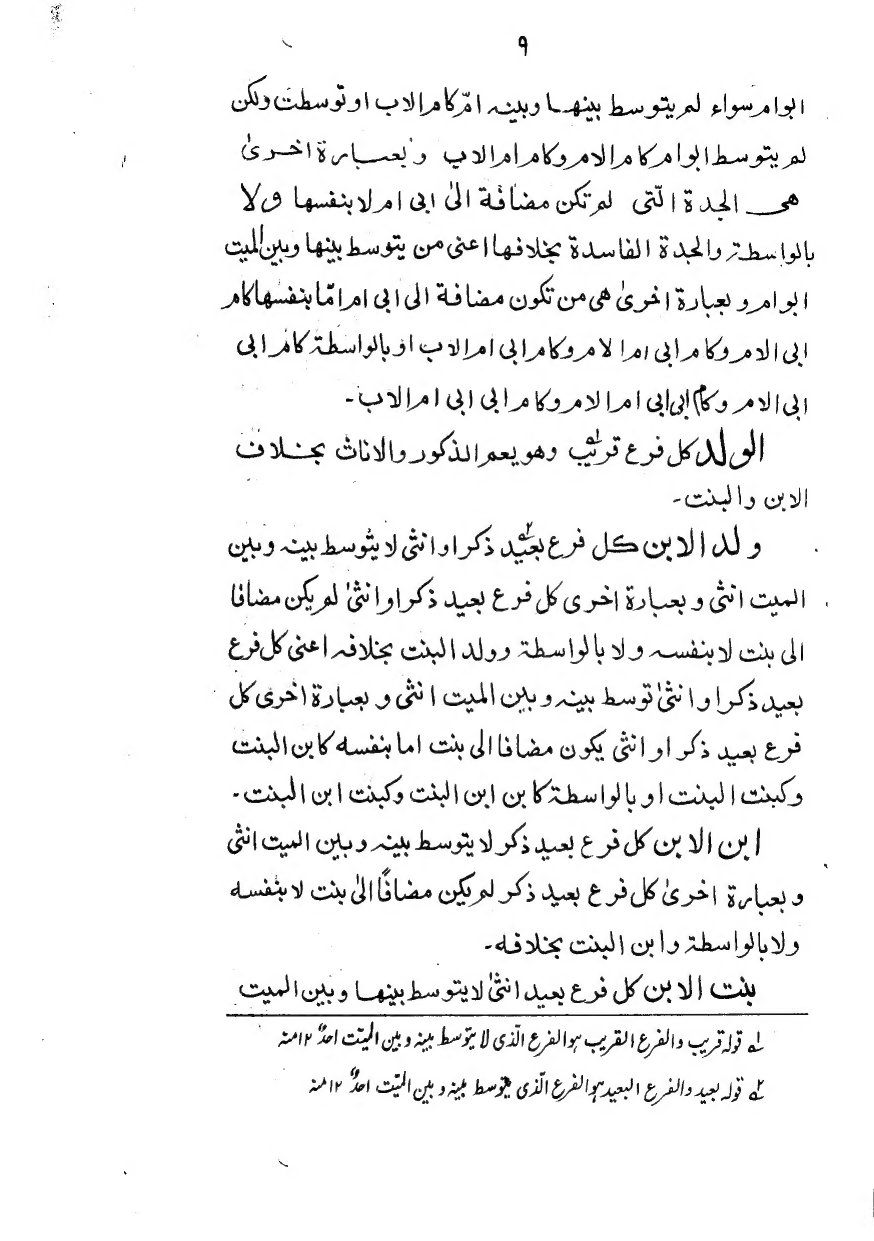 ٩
ابوام سواء لم يتوسط بينها وبينه امّ كام الاب او توسطت ولكن
لم يتوسط ابوام كام الام وكام ام الاب وبعبارة اخرىٰ
هى الجدة الّتى لم تكن مضافة الىٰ ابى ام لا بنفسها ولا
بالواسطة والجدة الفاسدة بخلافها اعنى من يتوسط بينها وبين الميت
ابوام وبعبارة اخرىٰ هى من تكون مضافة الى ابى ام امّا بنفسها كام
ابى الام وكام ابى ام الام وكام ابى ام الاب او بالواسطة كام ابى
ابى الام وكام ابى ابى ام الام وكام ابى ابى ام الاب۔
الولد كل فرع قريب۱ وهو يعم الذكور والاناث بخلاف
الابن والبنت۔
ولد الابن كل فرع بعيد۲ ذكرا او انثى لا يتوسط بينه وبين
الميت انثى وبعبارة اخرى كل فرع بعيد ذكرا او انثىٰ لم يكن مضافا
الى بنت لا بنفسه ولا بالواسطة وولد البنت بخلافه اعنى كل فرع
بعيد ذكرا او انثىٰ توسط بينه وبين الميت انثى وبعبارة اخرى كل
فرع بعيد ذكر او انثى يكون مضافا الى بنت اما بنفسه كابن البنت
وكبنت البنت او بالواسطة كابن ابن البنت وكبنت ابن البنت۔
ابن الابن كل فرع بعيد ذكر لا يتوسط بينه وبين الميت انثى
وبعبارة اخرىٰ كل فرع بعيد ذكر لم يكن مضافًا الىٰ بنت لا بنفسه
ولا بالواسطة وابن البنت بخلافه۔
بنت الابن كل فرع بعيد انثىٰ لا يتوسط بينها وبين الميت
۱؎ قوله قريب والفرع القريب هو الفرع الّذى لا يتوسط بينه وبين الميّت احدٌ ۱۲ منه
۲؎ قوله بعيد والفرع البعيد هو الفرع الّذى يتوسط بينه وبين الميّت احدٌ ۱۲ منه